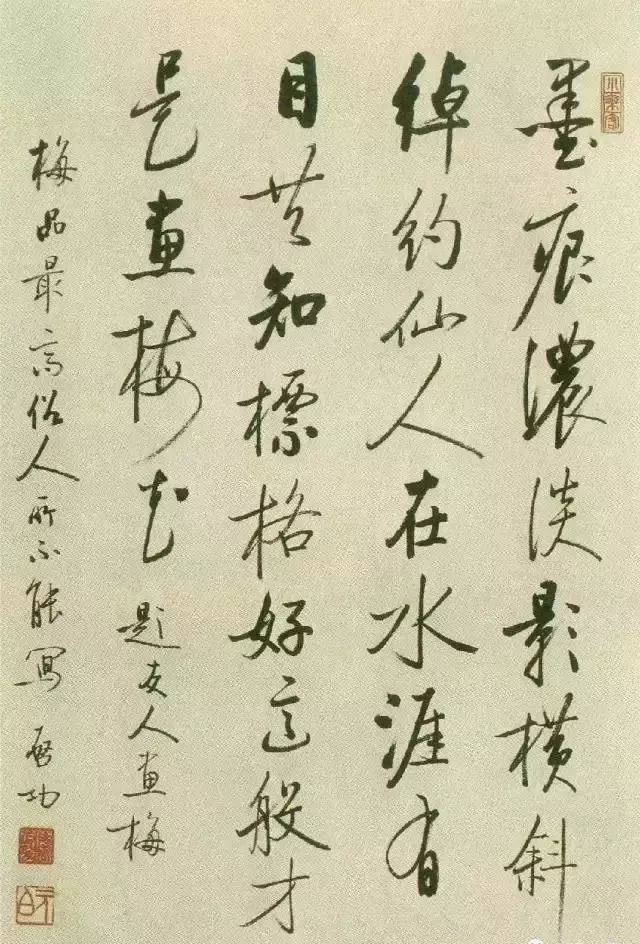 墨痕濃淡影橫斜
綽約仙人在水涯有
目共知標格好這般才
是畫梅花 題友人畫梅
梅品最高俗人所不能寫 啓功